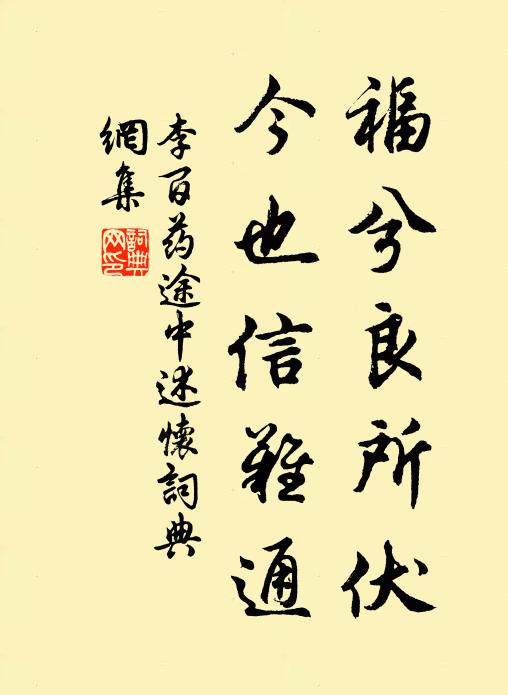 福兮良所伏
今也信難通
李百药途中述懷詞典
網集
詞典
网印